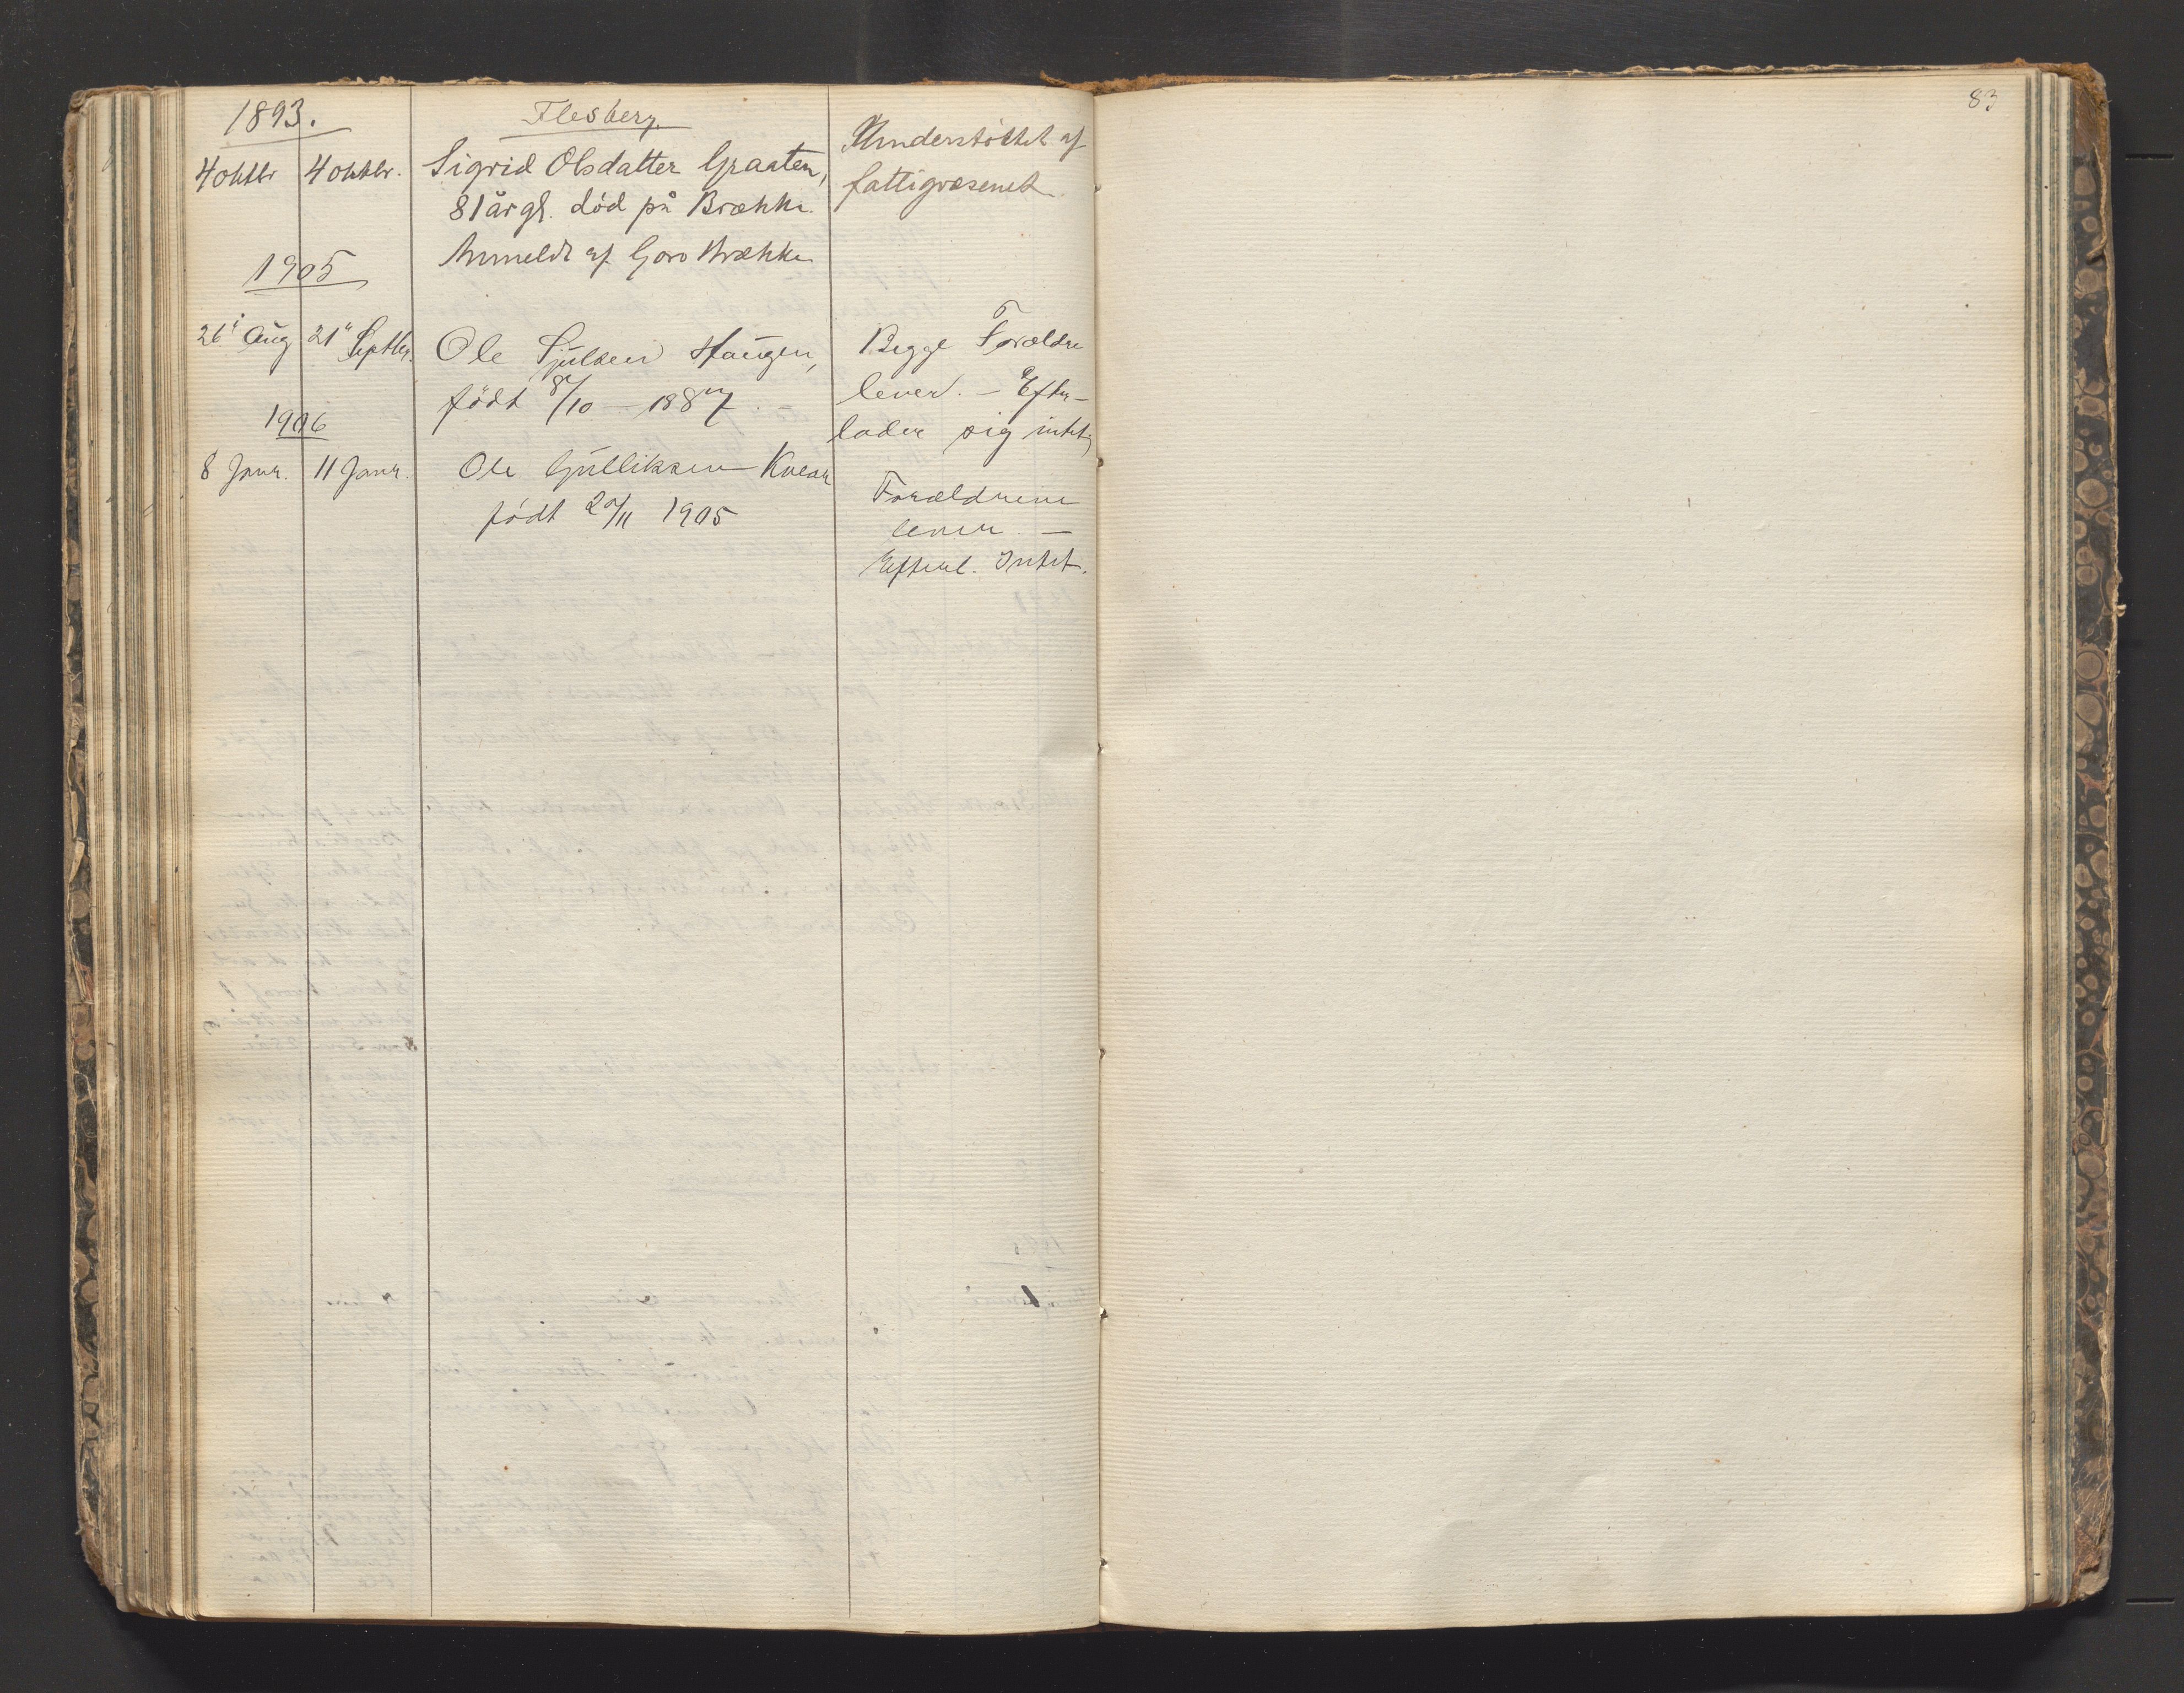 83
1893.
Flesberg.
4 oktbr 4 oktbr. Sigrid Olsdatter Graaten, Understöttet af
81 år gl. död på Brække. fattigvæsenet
Anmeldt af Goro Brække
1905
26' Aug 21" Septbr. Ole Sjulsen Haugen, Begge Forældre
født 8/10 - 1887. lever. - Efter-
lader sig intet,
1906
8 Janr. 11 Janr. Ole Gulliksen Forældrene
født 1905 lever. -
Efterl. Intet.